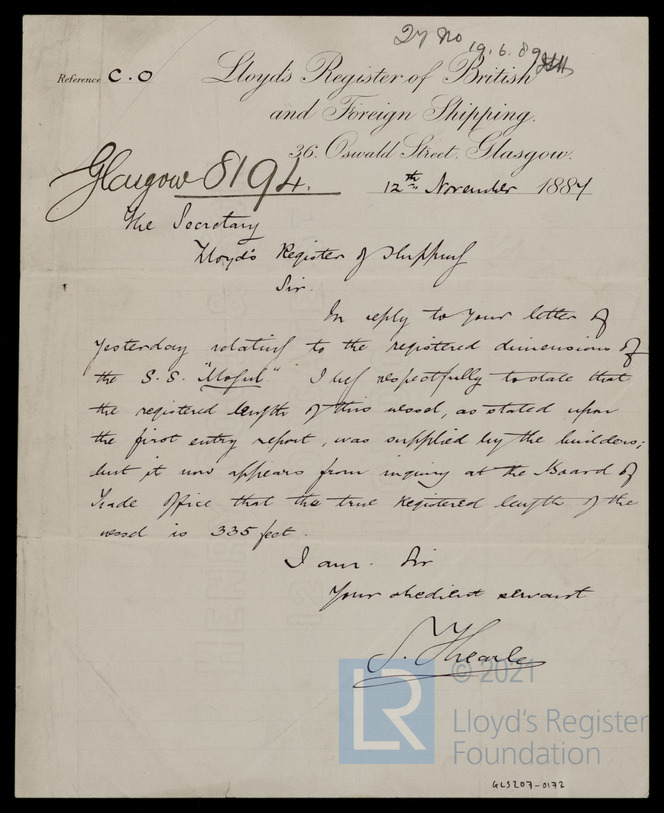 19.6.89
Reference C.O
Lloyd's Register of British
and Foreign Shipping.
36. Oswald Street. Glasgow.
Glasgow 8194.
12th November 1887
The Secretary
Lloyd's Register of Shipping
Sir.
In reply to your letter of
yesterday relating to the registered dimensions of
the S.S. "Mogul" I beg respectfully to state that
the registered length of this vessel, as stated upon
the first entry report, was supplied by the builders;
but it now appears from inquiry at the Board of
Trade Office that the true Registered length of the
vessel is 335 feet.
I am. Sir
Your obedient servant
S. Thearle
© 2021
LR
Lloyd's Register
Foundation
GLS207-0172